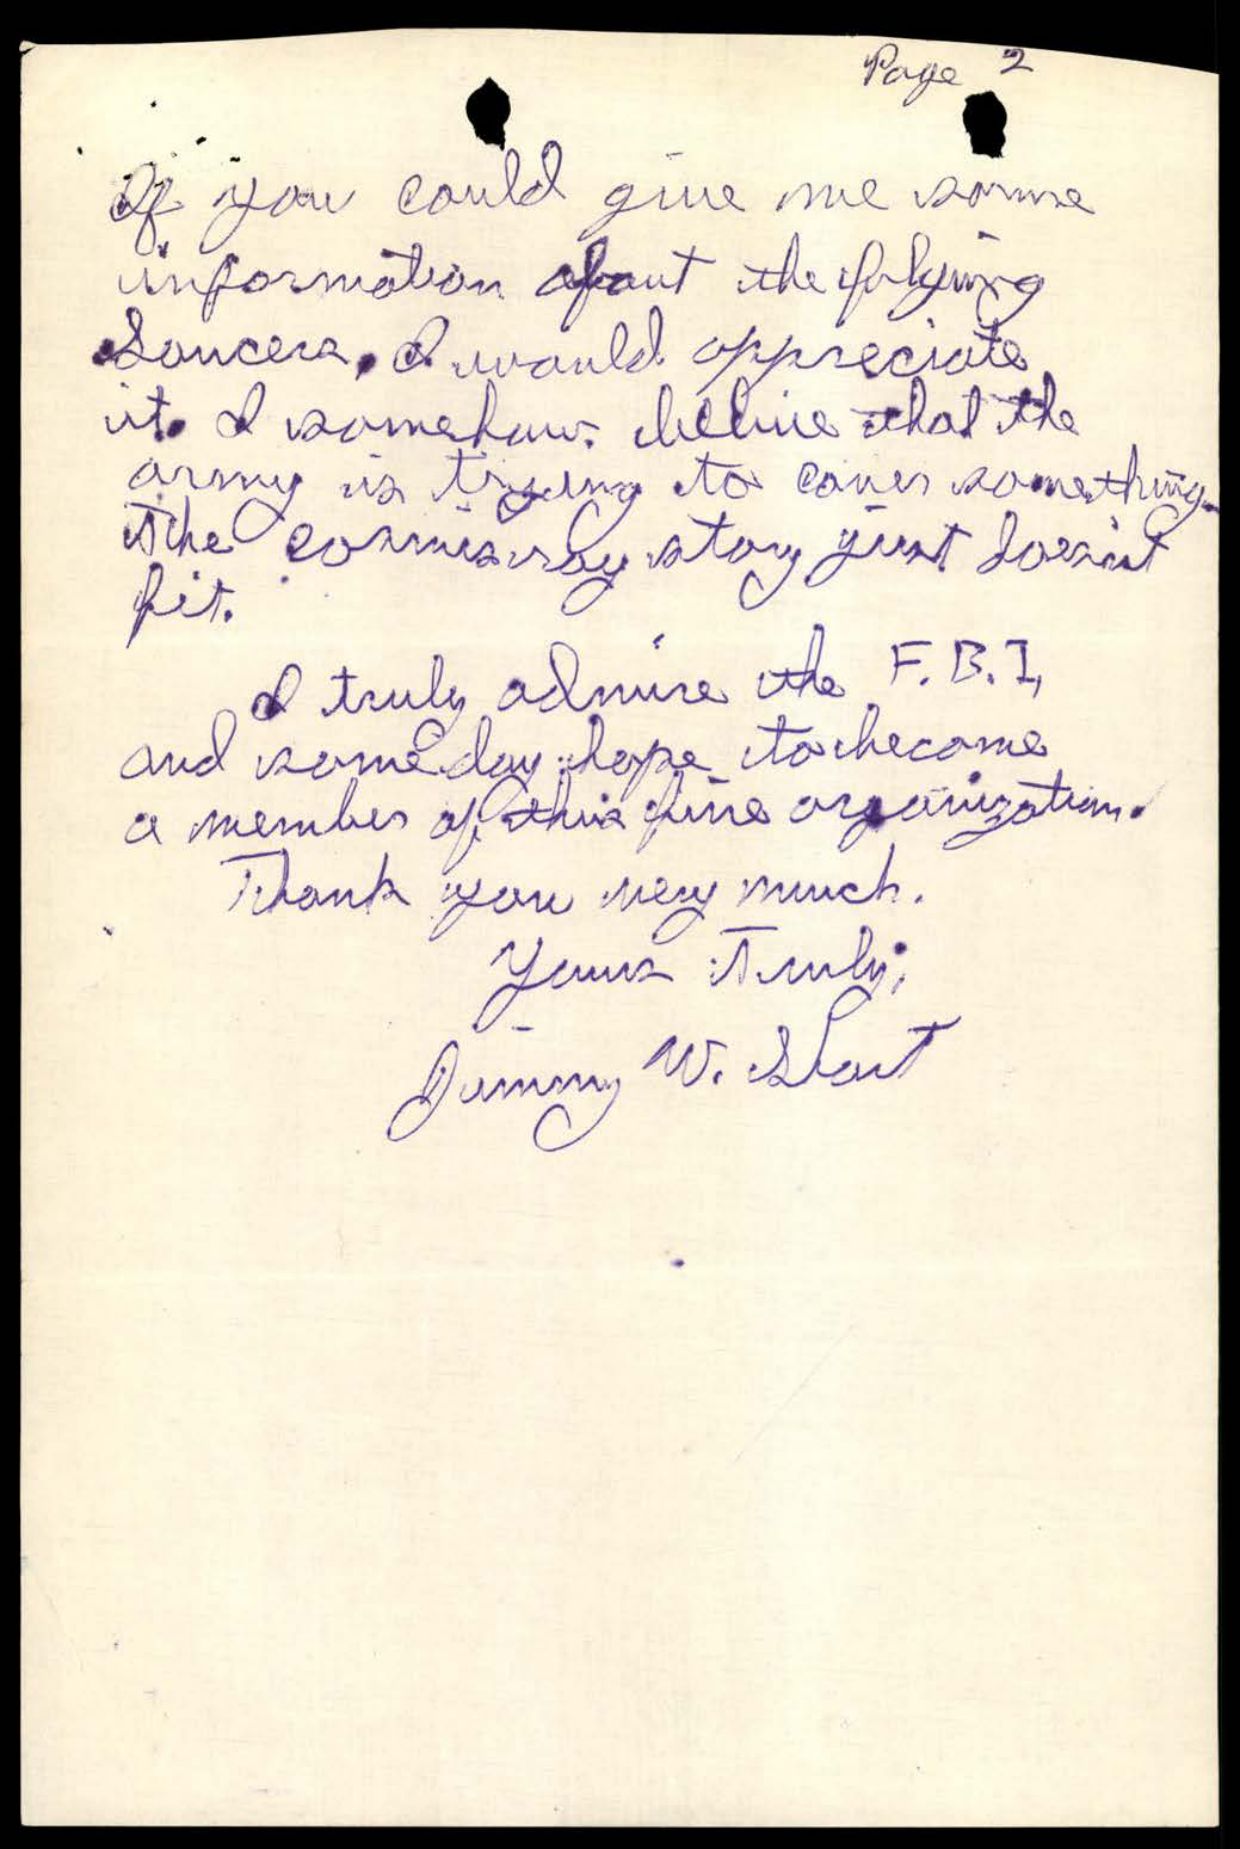 Page 2
If you could give me some
information about the flying
Saucers, I would appreciate
it. I somehow belive that the
army is trying to cover something.
The cosmis ray story just doesn't
fit.
I truly admire the F.B.I,
and someday hope to become
a member of this fine organization.
Thank you very much.
Yours Truly,
Jimmy W.